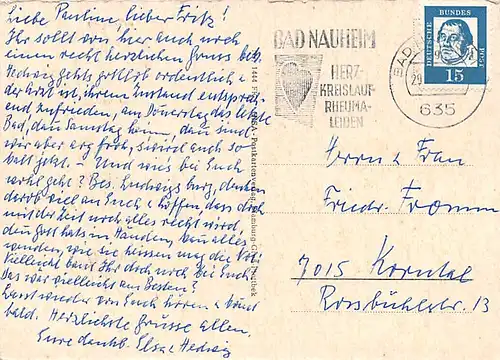 Liebe Pauline, lieber Fritz!
Ihr sollt von hier auch noch
einen recht herzlichen Gruss
Hedwig gehts gottlob ordentlich u.
der Arzt ist, ihrem Zustand entsprech-
end zufrieden, am Donnerstag das letzte
Bad, dann Samstag heim, dann sind
wir aber arg froh,
bald jetzt. - Und wie's bei Euch
wohl geht? Bes. Ludwigsburg,
viel an Euch u. hoffen, dass doch
mit der Zeit noch alles recht wird,
Gott hats in Händen, kann alles
wenden, wie
Vielleicht baut Ihr doch noch bei Euch,
Das wär vielleicht am Besten?
Lasst wieder von Euch hören u.
bald. Herzlichste Grüsse allen,
Eure dankb. Elsa u. Hedwig
BAD NAUHEIM
HERZ-
KREISLAUF-
RHEUMA-
LEIDEN
BAD
29
635
DEUTSCHE BUNDES POST
15
Herrn u. Frau
Friedr. Fromm
7015 Korntal
Rossbühlstr. 13